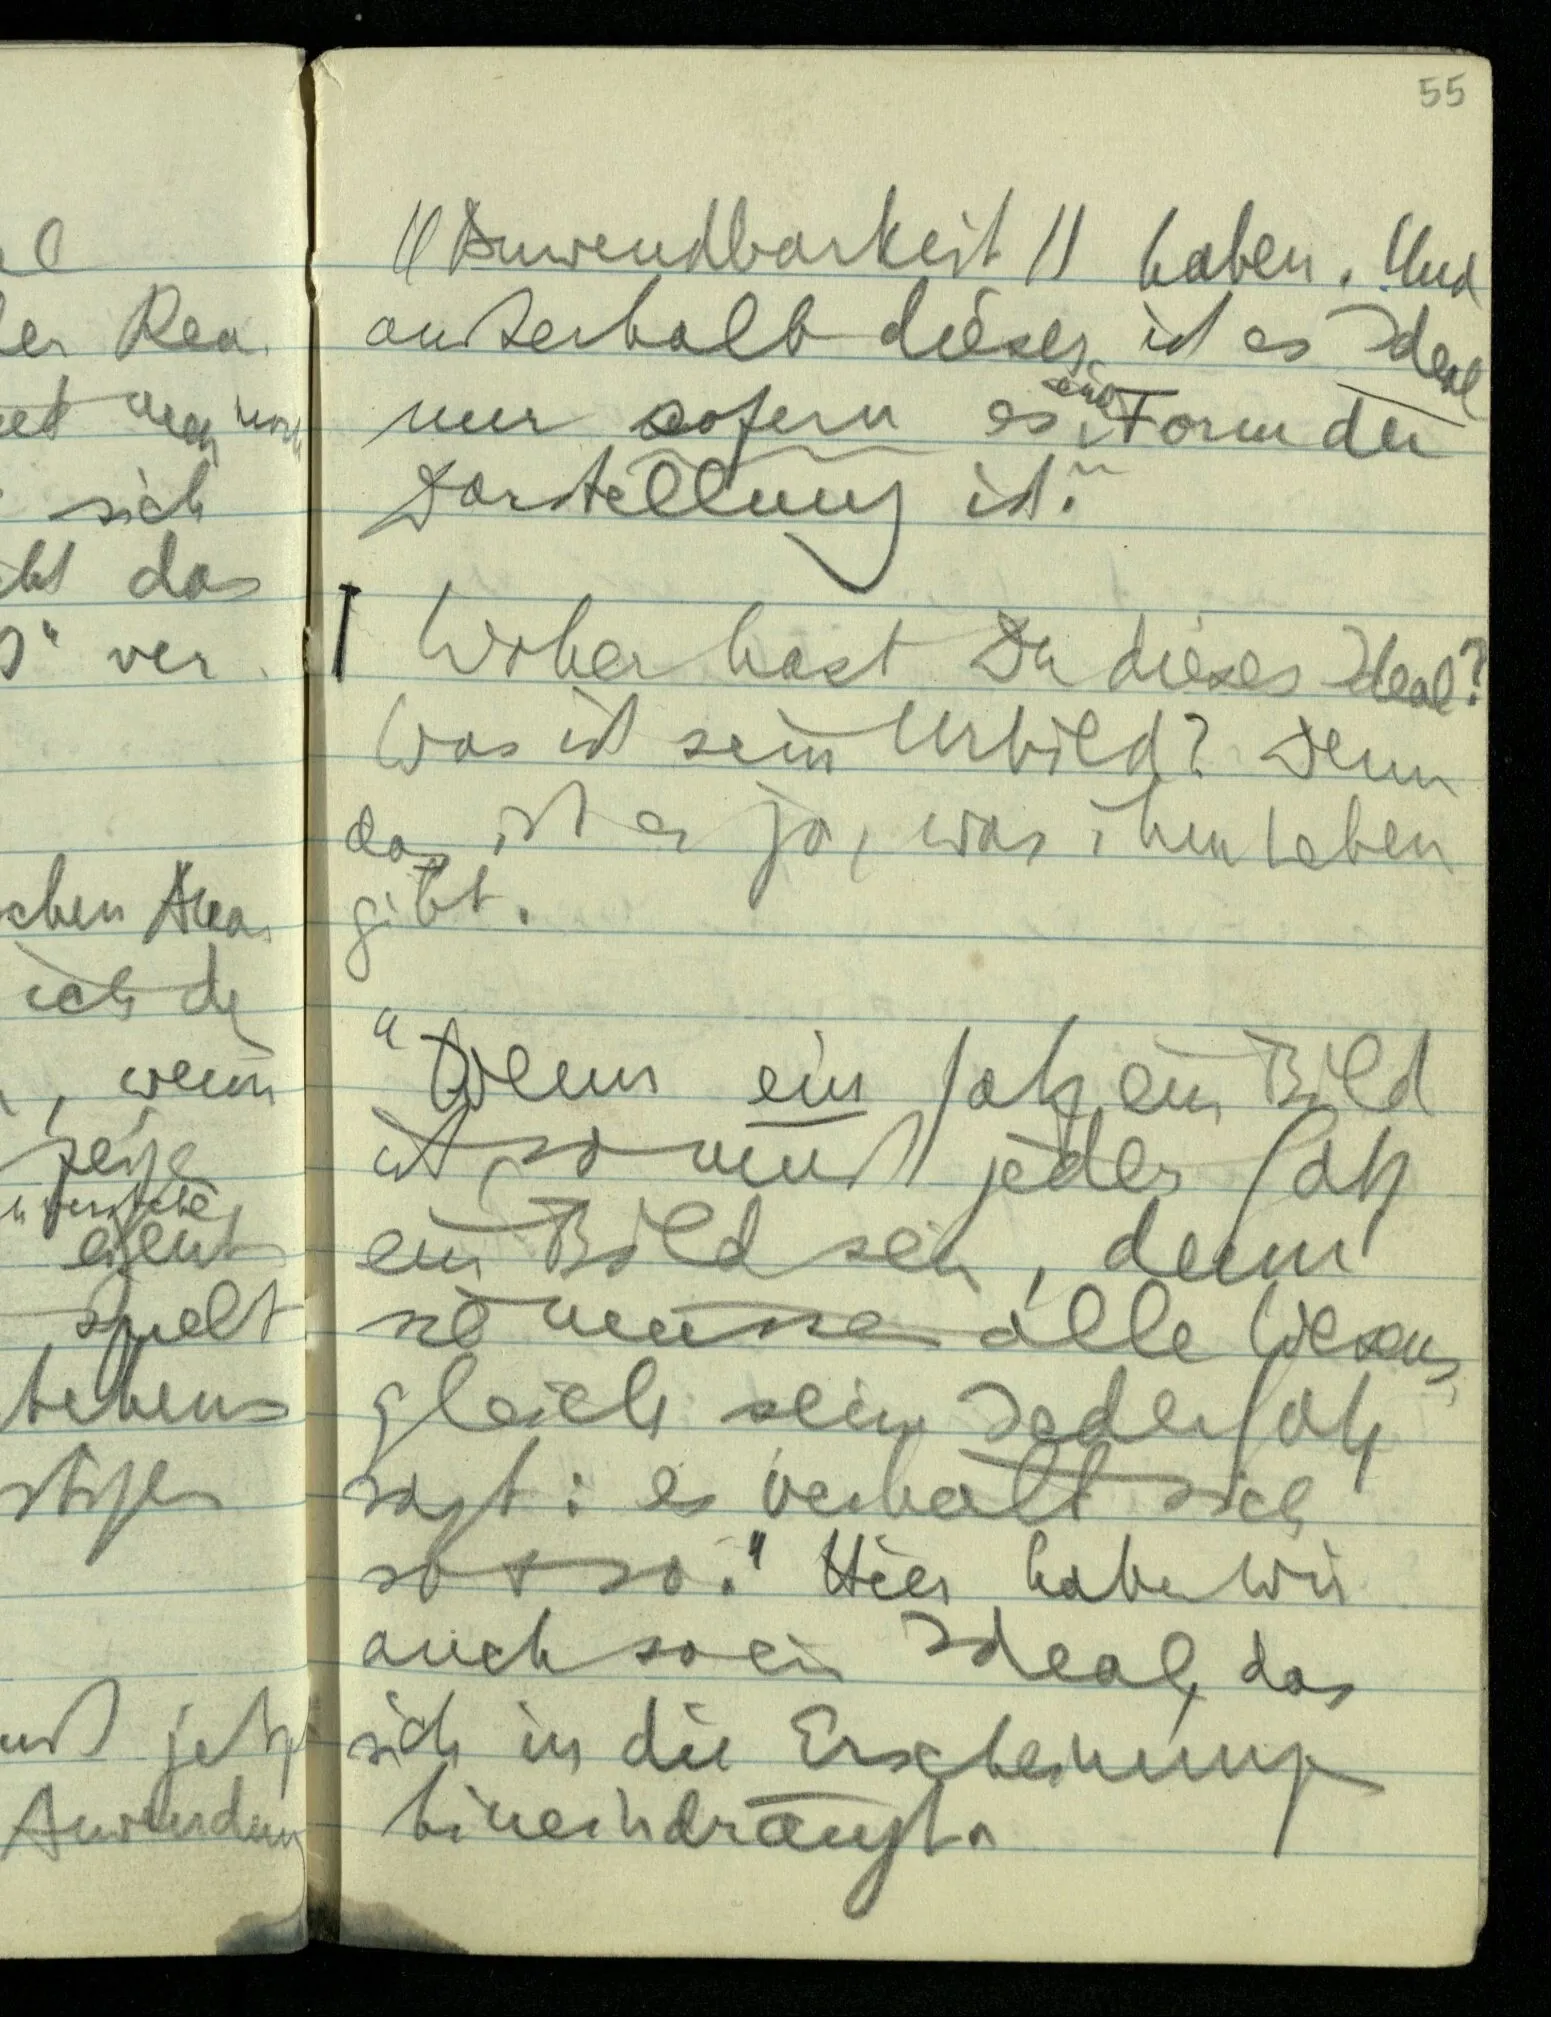 55
al
der Rea
sich
das
ver
schen
ich de
, wenn
spielt
jetzt
Anwendung
"Anwendbarkeit" haben. Und
außerhalb dieser ist es Ideal
nur sofern es eine Form der
Darstellung ist."
Woher hast Du dieses Ideal?
Was ist sein Urbild? Denn
das ist es ja, was ihm Leben
gibt.
"Wenn ein Satz ein Bild
ist, so muß jeder Satz
ein Bild sein, denn
sie müssen alle Wesens
gleich sein. Jeder Satz
sagt: es verhält sich
so + so." Hier haben wir
auch so ein Ideal, das
sich in die Erscheinung
hineindrängt.